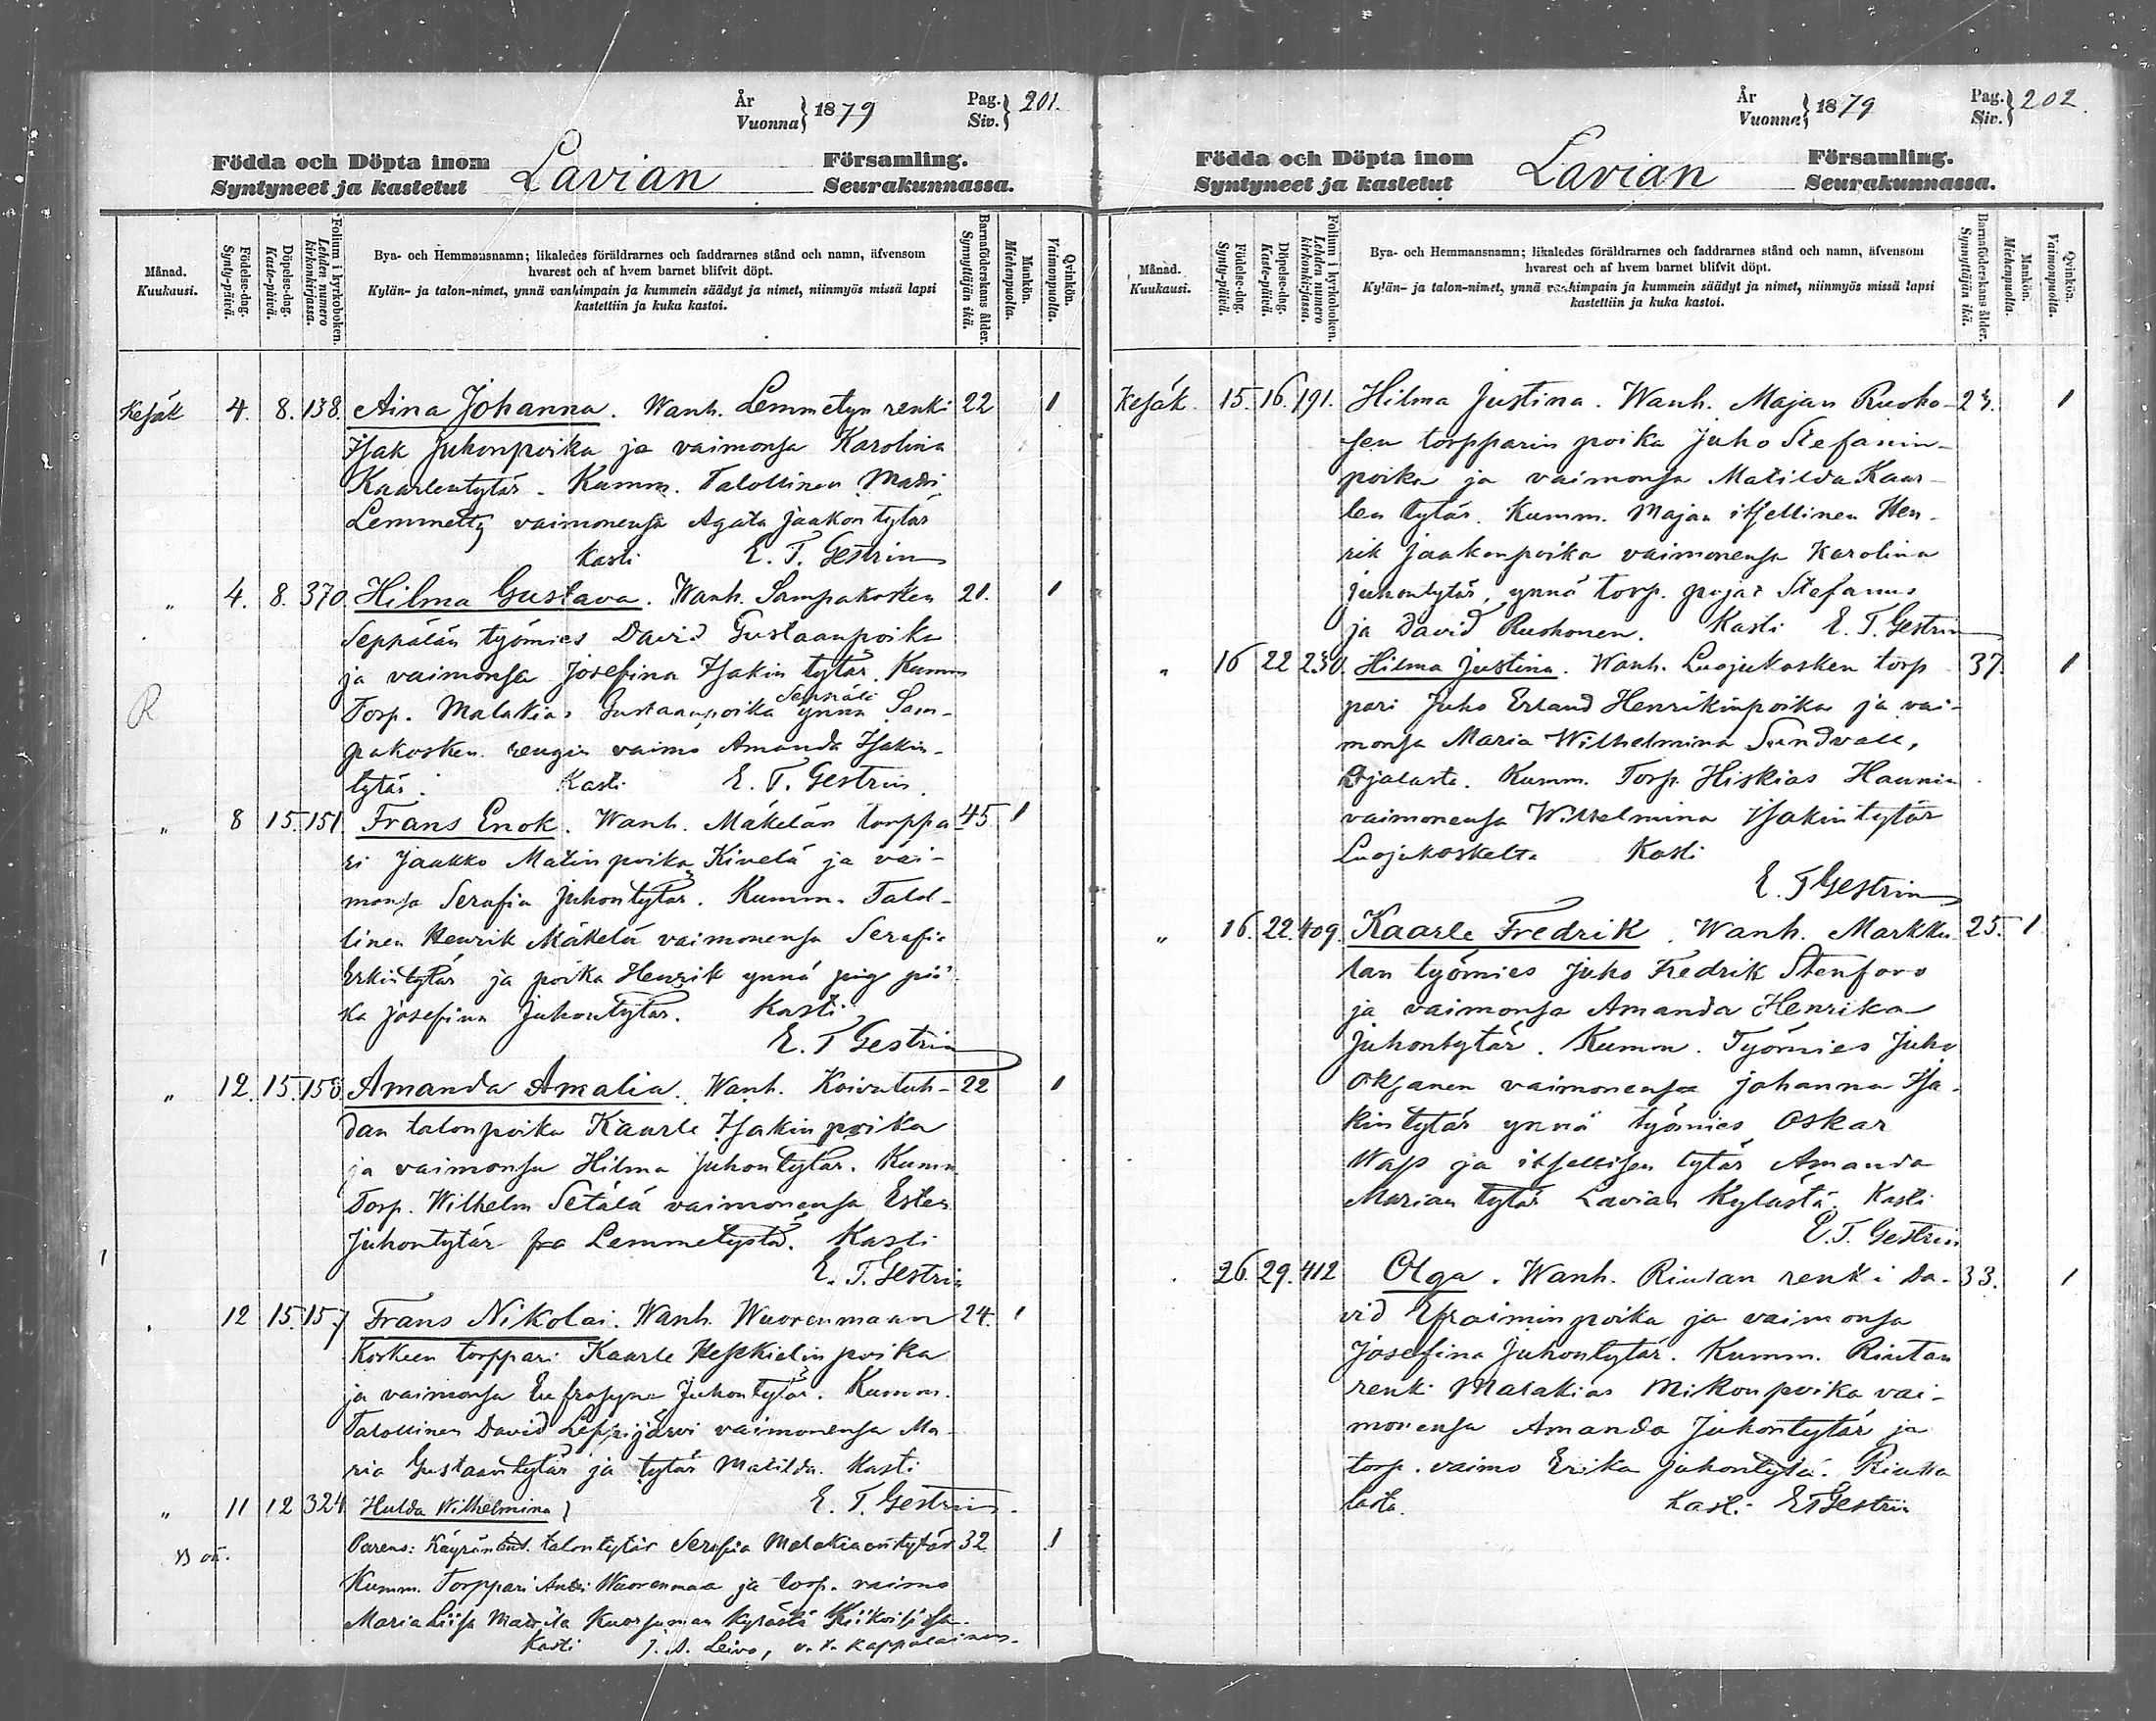 År
Vuonna } 1879
Pag.
Siv. } 201.
Födda och Döpta inom Lavian Församling.
Syntyneet ja kastetut Seurakunnassa.
Månad.
Kuukausi.
Födelse-dag.
Synty-päivä.
Döpelse-dag.
Kaste-päivä.
Folium i kyrkoboken.
Lehden numero kirkonkirjassa.
Bya- och Hemmansnamn; likaledes föräldrarnes och faddrarnes stånd och namn, äfvensom
hvarest och af hvem barnet blifvit döpt.
Kylän- ja talon-nimet, ynnä vanhimpain ja kummein säädyt ja nimet, niinmyös missä lapsi
kastettiin ja kuka kastoi.
Barnaföderskans ålder.
Synnyttäjän ikä.
Mankön.
Miehenpuolia.
Qvinkön.
Vaimonpuolia.
Kesäk 4. 8. 138. Aina Johanna. Wanh. Lemmetyn renki 22 1
Isak Juhonpoika ja vaimonsa Karolina
Kaarlentytär. Kumm. Talollinen Matti
Lemmetty vaimonensa Agata Jaakontytär
Kasti E. T. Gestrin
" 4. 8. 370 Hilma Gustava. Wanh. Sampakosken 21. 1
Seppälän työmies David Gustaanpoika
ja vaimonsa Josefina Isakintytär. Kumm
R Torp. Malakias Gustaanpoika Seppälä ynnä Sam-
pakosken rengin vaimo Amanda Isakin-
tytär. Kasti E. T. Gestrin.
" 8 15. 151. Frans Enok. Wanh. Mäkelän torppa- 45. 1
ri Jaakko Matinpoika Kivelä ja vai-
monsa Serafia Juhontytär. Kumm. Talol-
linen Henrik Mäkelä vaimonensa Serafia
Erkintytär ja poika Henrik ynnä pii-
ka Josefina Juhontytär. Kasti
E. T Gestrin
" 12. 15. 158 Amanda Amalia. Wanh. Koivuluh- 22 1
dan talonpoika Kaarle Isakinpoika
ja vaimonsa Hilma Juhontytär. Kumm
Torp. Wilhelm Setälä vaimonensa Ester
Juhontytär Lemmetystä. Kasti
E. T. Gestrin
12 15. 157 Frans Nikolai. Wanh. Wuorenmaan 24. 1
Koskeen torppari Kaarle Heskielinpoika
ja vaimonsa Eufrosyne Juhontytär. Kumm.
Talollinen David Leppijärvi vaimonensa Ma-
ria Gustaantytär ja tytär Matilda. Kasti
E. T. Gestrin.
" 11 12 324 Hulda Wilhelmina
Parens: Käyrän talontytär Serafia Malakiaantytär 32 1
Kumm. Torppari Antti Wuorenmaa ja torp. vaimo
Maria Liisa Mattila Kuorsuman kylästä Kiikoisissa.
Kasti J. A. Leivo, v.t. kappalainen.
År
Vuonna } 1879
Pag.
Siv. } 202.
Födda och Döpta inom Lavian Församling.
Syntyneet ja kastetut Seurakunnassa.
Månad.
Kuukausi.
Födelse-dag.
Synty-päivä.
Döpelse-dag.
Kaste-päivä.
Folium i kyrkoboken.
Lehden numero kirkonkirjassa.
Bya- och Hemmansnamn; likaledes föräldrarnes och faddrarnes stånd och namn, äfvensom
hvarest och af hvem barnet blifvit döpt.
Kylän- ja talon-nimet, ynnä vanhimpain ja kummein säädyt ja nimet, niinmyös missä lapsi
kastettiin ja kuka kastoi.
Barnaföderskans ålder.
Synnyttäjän ikä.
Mankön.
Miehenpuolia.
Qvinkön.
Vaimonpuolia.
Kesäk. 15. 16. 191. Hilma Justina. Wanh. Majan Ruoho- 1
sen torpparin poika Juho Stefanin-
poika ja vaimonsa Matilda Kaar-
len tytär. Kumm. Majan itsellinen Hen-
rik Jaakonpoika vaimonensa Karolina
Juhontytär, ynnä torp. pojat Stefanus
ja David Ruohonen. Kasti E. T. Gestrin
" 16 22 230. Hilma Justina. Wanh. Luojukosken torp 37. 1
pari Juho Erland Henrikinpoika ja vai-
monsa Maria Wilhelmina Sundvall,
Ojalasta. Kumm. Torp. Hiskias Haunin
vaimonensa Wilhelmina Isakintytär
Luojukoskelta Kasti
E. T Gestrin
" 16. 22. 409 Kaarle Fredrik. Wanh. Markku- 25. 1
lan työmies Juho Fredrik Stenfors
ja vaimonsa Amanda Henrika
Juhontytär. Kumm. Työmies Juho
Oksanen vaimonensa Johanna Isa-
kintytär ynnä työmies Oskar
Wass ja itsellisen tytär Amanda
Marian tytär Lavian Kylästä. Kasti
E. T. Gestrin
26. 29. 412 Olga. Wanh. Riutan renki Da- 33. 1
vid Efraiminpoika ja vaimonsa
Josefina Juhontytär. Kumm. Riutan
renki Malakias Mikonpoika vai-
monensa Amanda Juhontytär ja
torp. vaimo Erika Juhontytä. Riuta
lasta. Kasti E T Gestrin